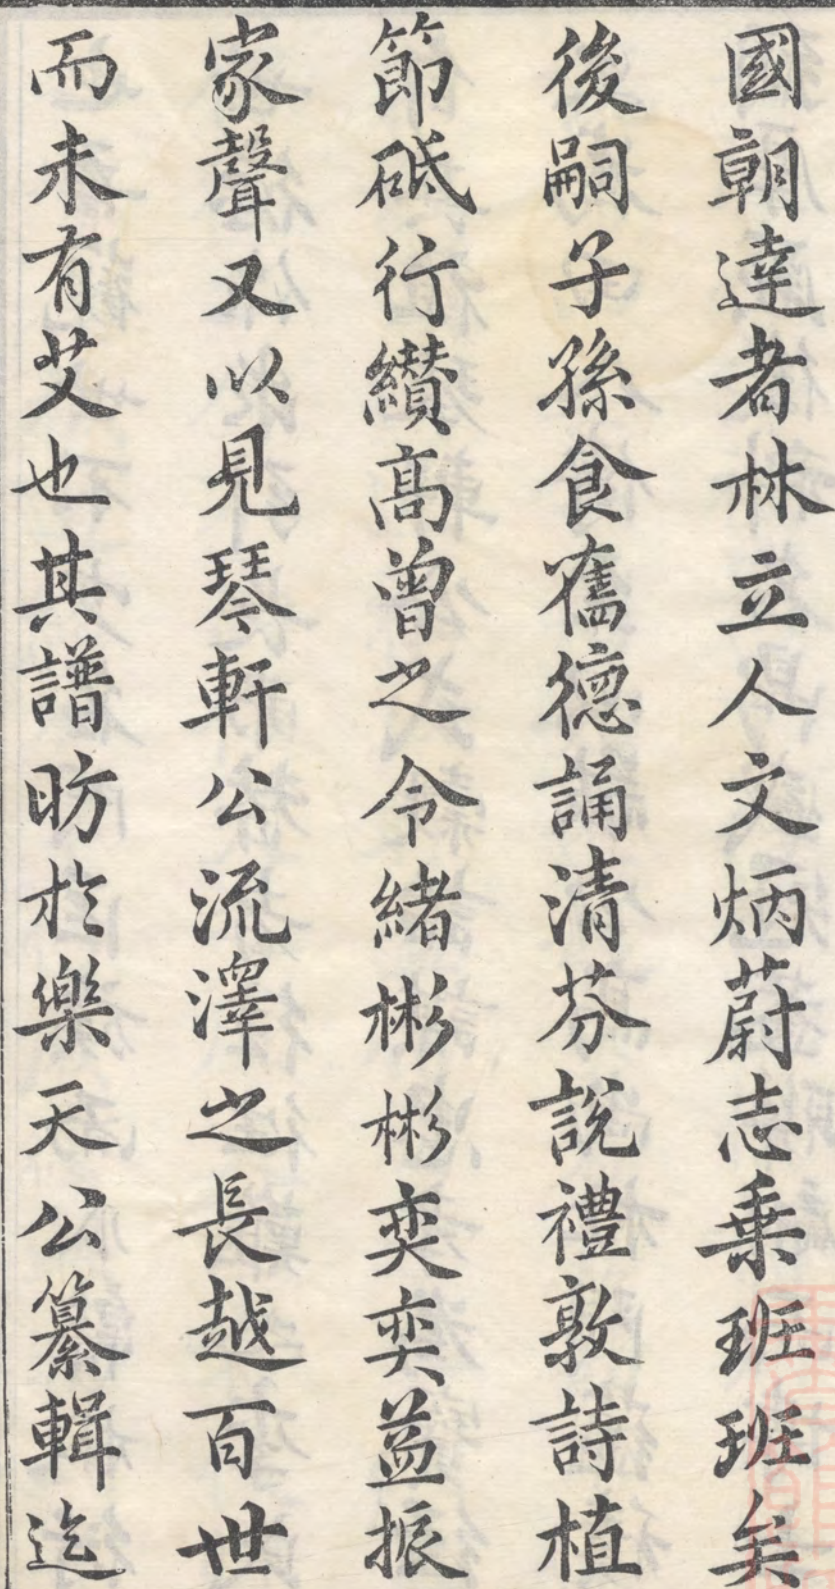 國朝達者林立人文炳蔚志乗班班矣
後嗣子孫食舊德誦清芬說禮敦詩植
節砥行纘高曾之令緒彬彬奕奕益振
家聲又以見琴軒公流澤之長越百世
而未有艾也其譜昉於樂天公纂輯迄